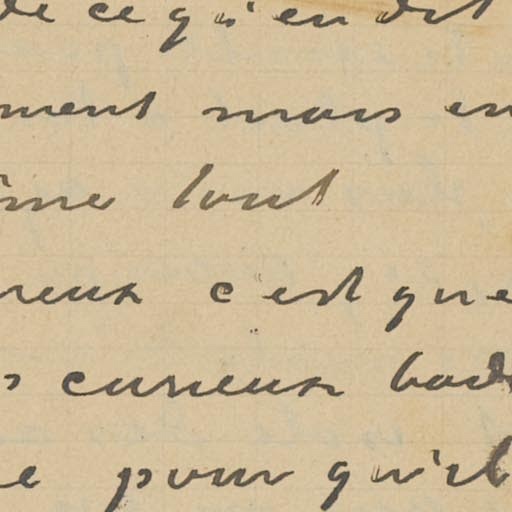 de ce qu'en dit
ment mais en
ime tout
reux c'est que
s curieux bad
e pour qu'il